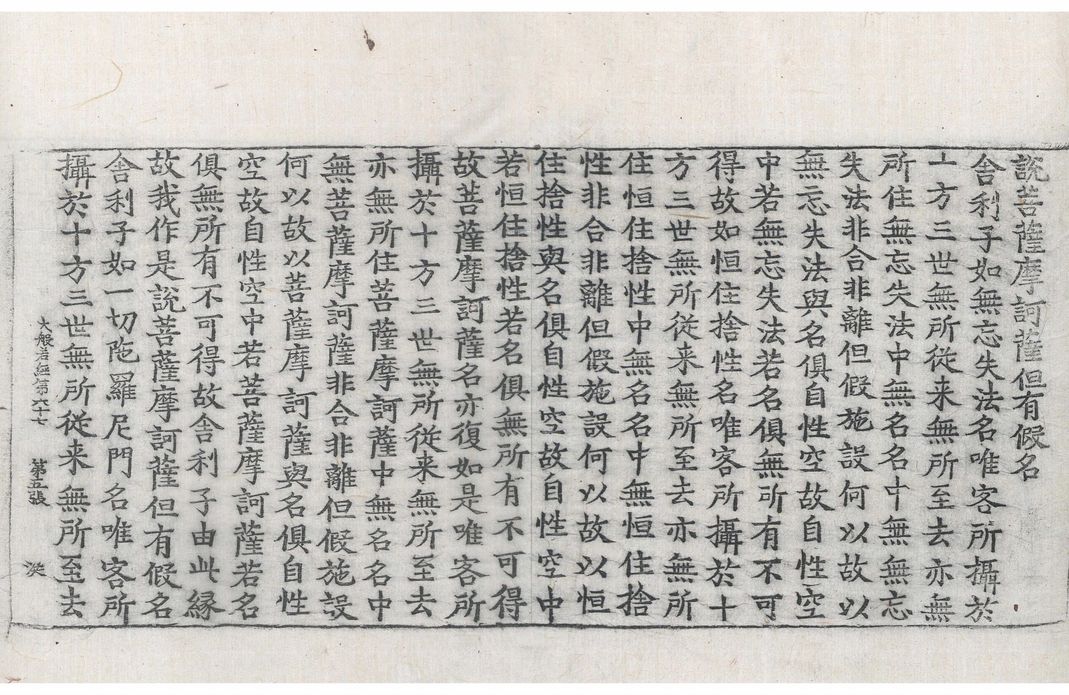 說菩薩摩訶薩但有假名
舎利子如無忘失法名唯客所攝於
十方三世無所從来無所至去亦無
所住無忘失法中無名名中無無忘
失法非合非離但假施設何以故以
無忘失法與名俱自性空故自性空
中若無忘失法若名俱無所有不可
得故如恒住捨性名唯客所攝於十
方三世無所從来無所至去亦無所
住恒住捨性中無名名中無恒住捨
性非合非離但假施設何以故以恒
住捨性與名俱自性空故自性空中
若恒住捨性若名俱無所有不可得
故菩薩摩訶薩名亦復如是唯客所
攝於十方三世無所從来無所至去
亦無所住菩薩摩訶薩中無名名中
無菩薩摩訶薩非合非離但假施設
何以故以菩薩摩訶薩與名俱自性
空故自性空中若菩薩摩訶薩若名
俱無所有不可得故舎利子由此縁
故我作是說菩薩摩訶薩但有假名
舎利子如一切陁羅尼門名唯客所
攝於十方三世無所從来無所至去
大般若經第六十七 第五張